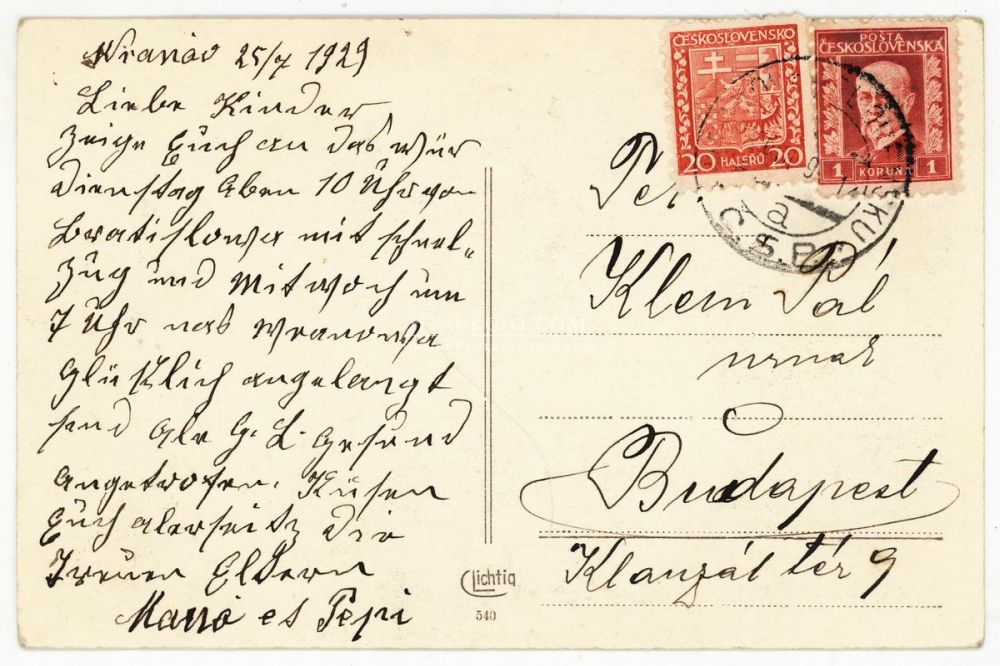 Wranau 25/7 1929
Liebe Kinder
Zeige Euch an das wür
Dienstag Aben 10 Uhr von
Bratislowa mit schnel=
Zug und Mitwoch um
7 Uhr nas Wranowa
Glüklich angelangt
send ale G. L. Gesund
angetrofen. Küsen
Euch alerseitz die
Treuen Eltern
es Pepi
ČESKOSLOVENSKO
20 HALÉŘŮ 20
POŠTA
ČESKOSLOVENSKÁ
1 KORUNA 1
Č.S.P.
a
Klein Pál
urnak
Budapest
Klauzál tér 9
Lichtig
540